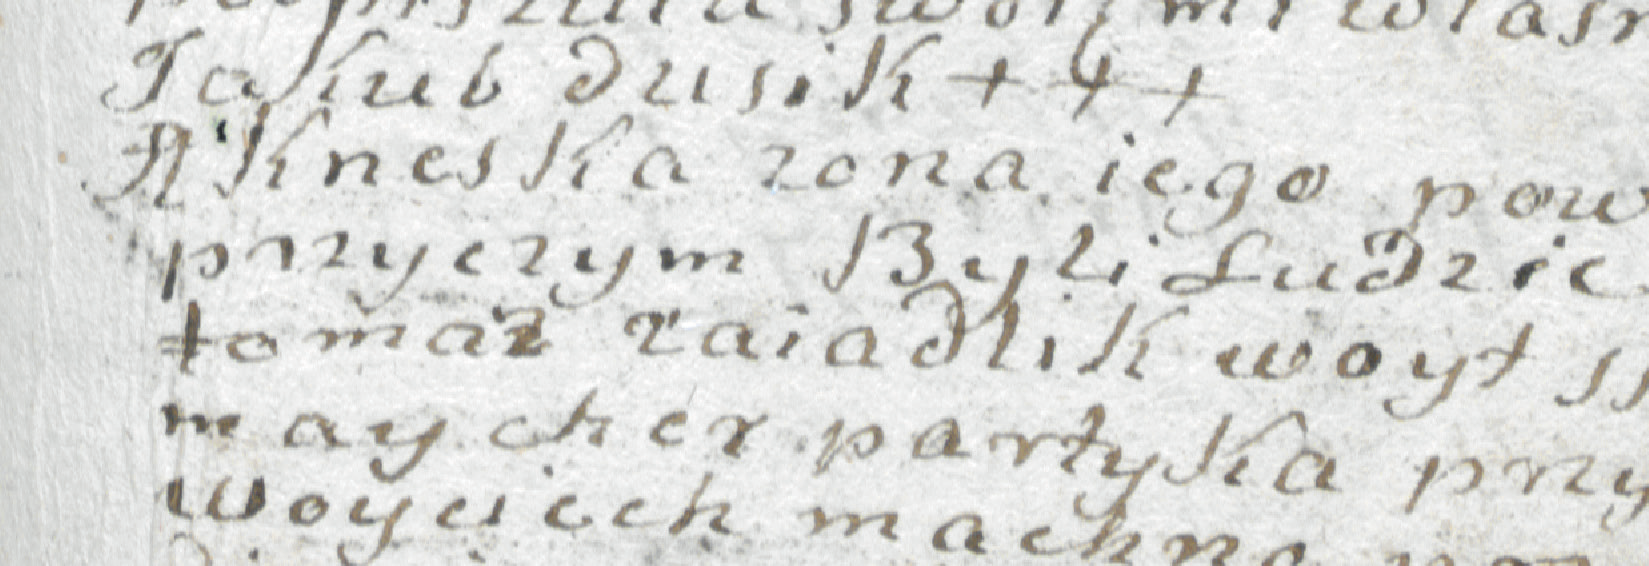 Jakub dusik + + +
Akneska zona iego pow
przyczym Byli Ludzie
tomaz zaiadlik woyt
maycher partyka przy
woyciech machna